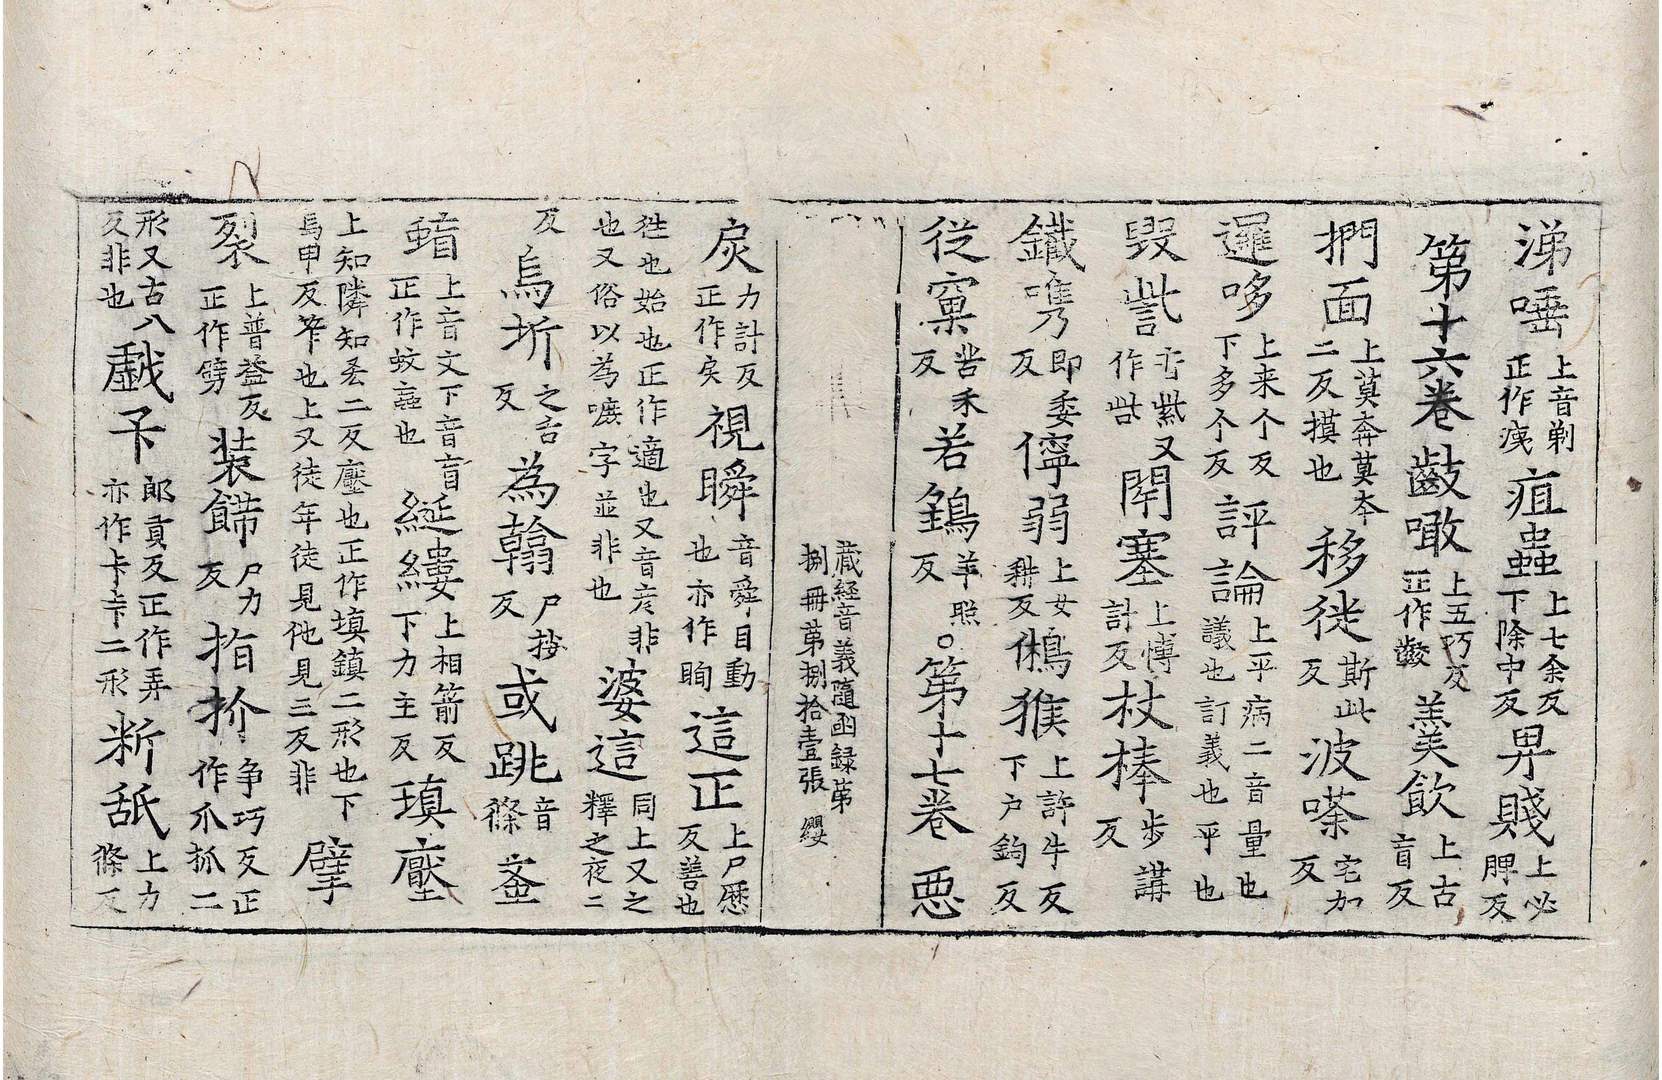 涕唾上音剃正作洟疽蟲上七余反下除中反㽎賤上必脾反
第十六卷齩噉上五巧反正作齩羹飲上古盲反
捫面上莫奔莫本二反摸也移徙斯此反波嗏宅加反
邏哆上来个反下多个反評論上平病二音量也議也訂義也平也
毀訾亦呰又作呰閉塞上博計反杖棒步講反
鐵㗱即委反儜弱上女耕反鵂猴上許牛反下户鉤反
従窠苦禾反若鷂羊照反○第十七卷惡
藏经音義隨函録第捌冊第捌拾壹張 纓
戾力計反正作戾視瞬音舜目動也亦作眴這正上尸歷反善也
徃也始也正作適也又音彦非也又俗以為嗾字並非也婆這同上又之釋之夜二
反烏坧之舌反為翰尸按反或跳音條蚉
䗈上音文下音盲正作蚊䖟也綖縷上相箭反下力主反瑱壓
上知隣知忝二反壓也正作填鎮二形也下烏甲反笮也上又徒年徒見他見三反非擘
裂上普益反正作劈装餙尸力反指抓争巧反正作爪抓二
形又古八反非也戱卞郎貢反正作弄亦作卡卞二形断舐上力條反